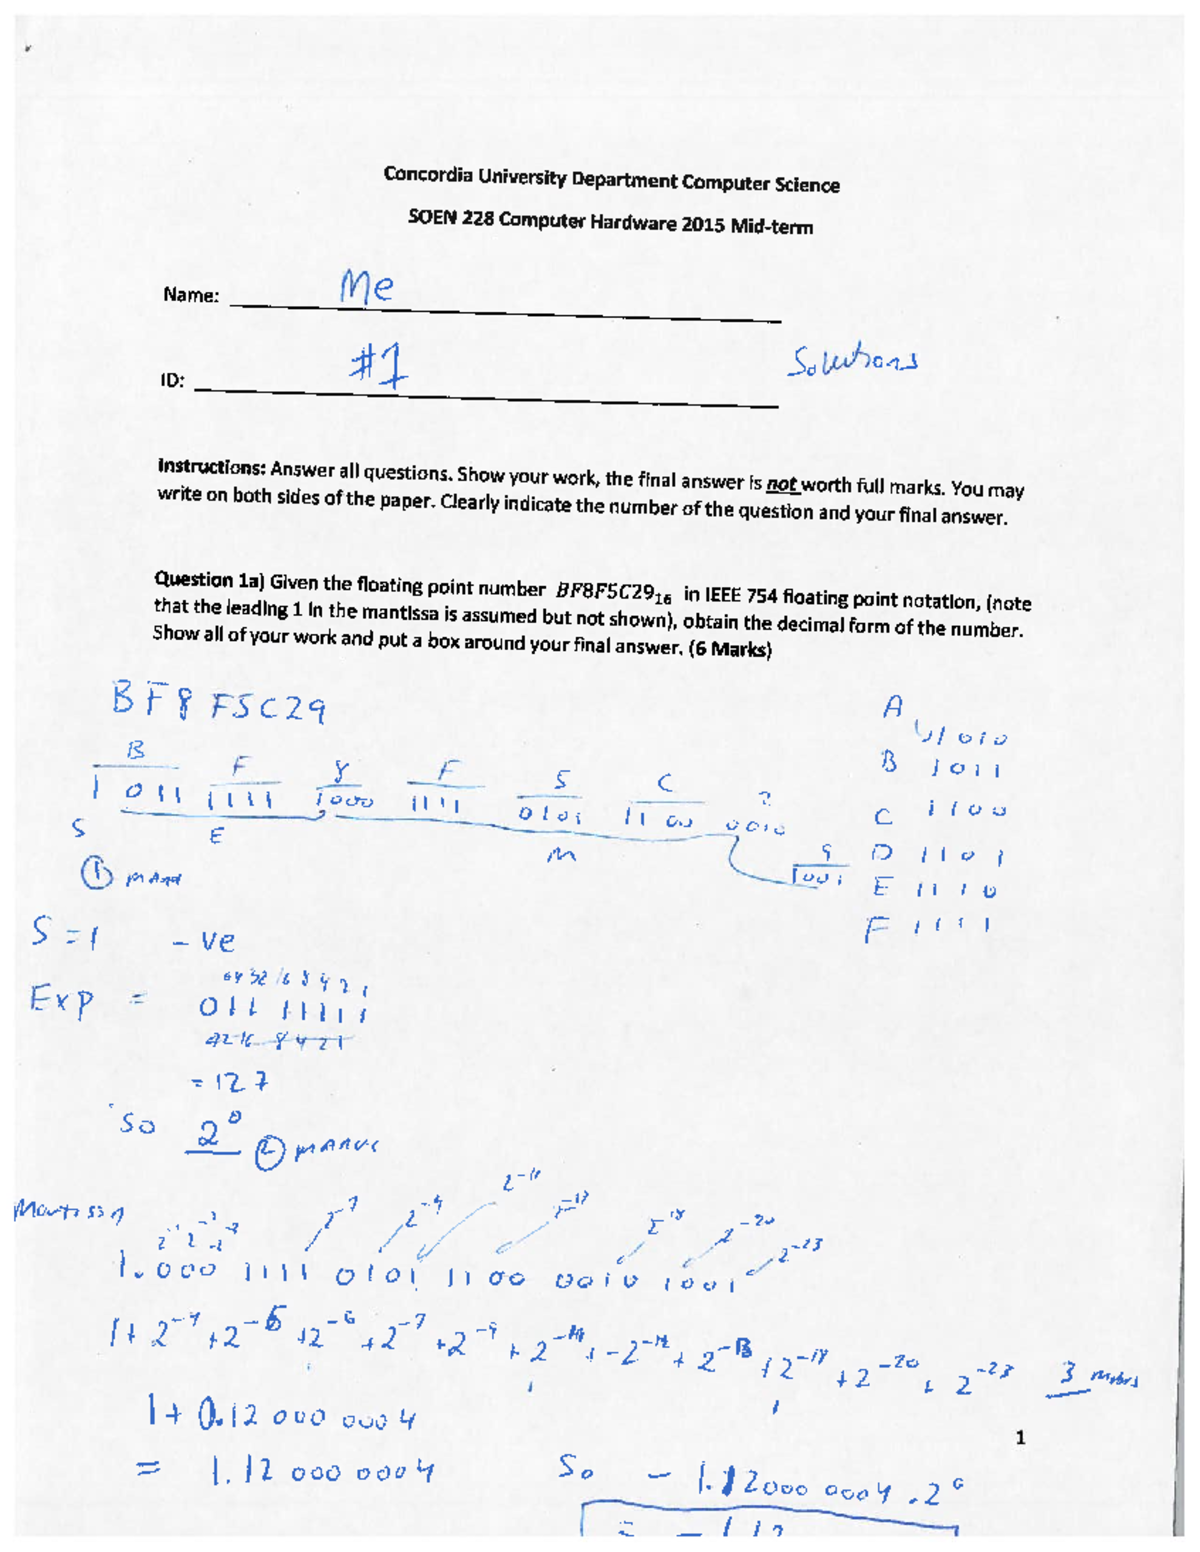 Concordia University Department Computer Science
SOEN 228 Computer Hardware 2015 Mid-term
Name: Me
ID: #1
Solutions
Instructions: Answer all questions. Show your work, the final answer is not worth full marks. You may
write on both sides of the paper. Clearly indicate the number of the question and your final answer.
Question 1a) Given the floating point number BF8F5C29₁₆ in IEEE 754 floating point notation, (note
that the leading 1 in the mantissa is assumed but not shown), obtain the decimal form of the number.
Show all of your work and put a box around your final answer. (6 Marks)
BF8 F5C29
B F 8 F 5 C 2 9
1 011 1111 1000 1111 0101 1100 0010 1001
S E M
A 1010
B 1011
C 1100
D 1101
E 1110
F 1111
① mark
S = 1 - ve
64 32 16 8 4 2 1
Exp = 011 11111
= 127
So 2⁰ ② marks
Mantissa
2⁻⁷ 2⁻⁹ 2⁻¹¹ 2⁻¹³ 2⁻¹⁸ 2⁻²⁰ 2⁻²³
2⁻¹ 2⁻² 2⁻³
1.000 1111 0101 1100 0010 1001
1 + 2⁻⁴ + 2⁻⁵ + 2⁻⁶ + 2⁻⁷ + 2⁻⁹ + 2⁻¹¹ + 2⁻¹² + 2⁻¹³ + 2⁻¹⁸ + 2⁻²⁰ + 2⁻²³ 3 marks
1 + 0.12 000 0004
= 1.12 000 0004
So - 1.12000 0004 . 2⁰
= - 1.12
1